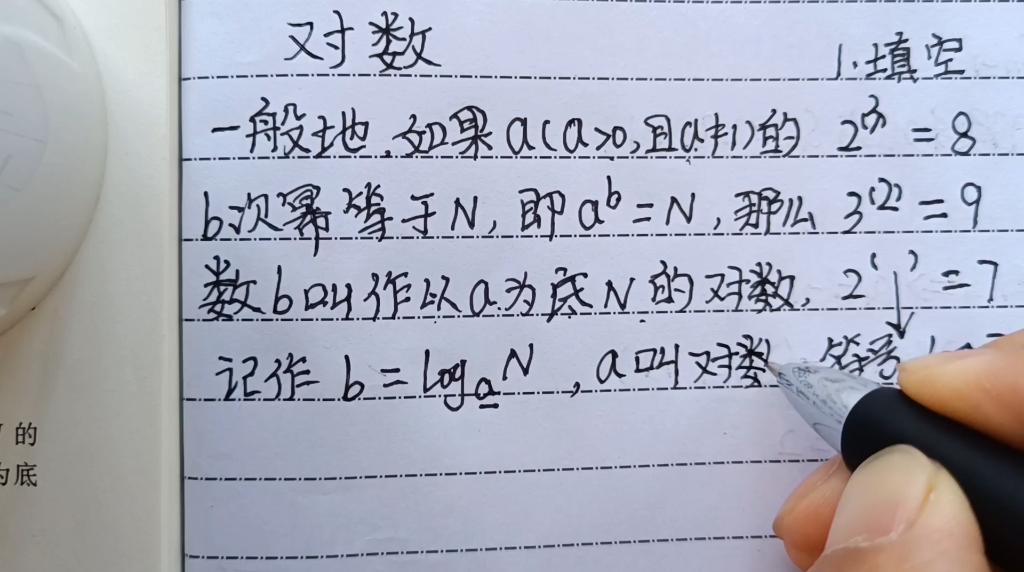 对数
1.填空
一般地,如果a(a>0,且a≠1)的 2⁽³⁾=8
b次幂等于N,即aᵇ=N,那么 3⁽²⁾=9
数b叫作以a为底N的对数, 2⁽ ⁾=7
记作 b=logₐN,a叫对数
的
为底